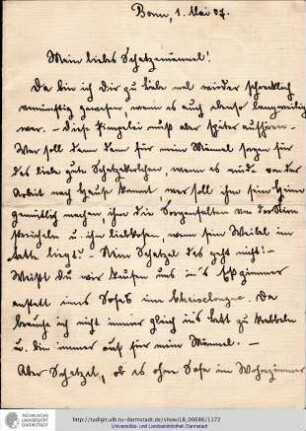 Bonn, 1. Mai 07.
Mein liebes Schatzemännel!
Da bin ich dir zu Liebe mal wieder schrecklich
vernünftig gewesen, wenn es auch ebenso langweilig
war. – Diese Pimpelei muß aber später aufhören.
Wer soll denn dann für mein Männel sorgen für
das liebe gute Schatzekerlchen, wenn es müde von der
Arbeit nach Hause kommt, wer soll ihm sein Heim
gemütlich machen ihm die Sorgenfalten von der Stirn
streicheln u. ihn liebkosen, wenn sein Weibel im
Bette liegt? – Nein Schatzel das geht nicht! –
Weißt Du wir kaufen uns in's Eßzimmer
anstatt eines Sofas eine Chaiselongue. Da
brauche ich nicht immer gleich ins Bett zu krabbeln
u. bin immer auf für mein Männel. –
Aber Schatzel, ob es ohne Sofa im Wohnzimmer
TECHNISCHE
UNIVERSITÄT
DARMSTADT
http://tudigit.ulb.tu-darmstadt.de/show/
Universitäts- und Landesbibliothek Darmstadt